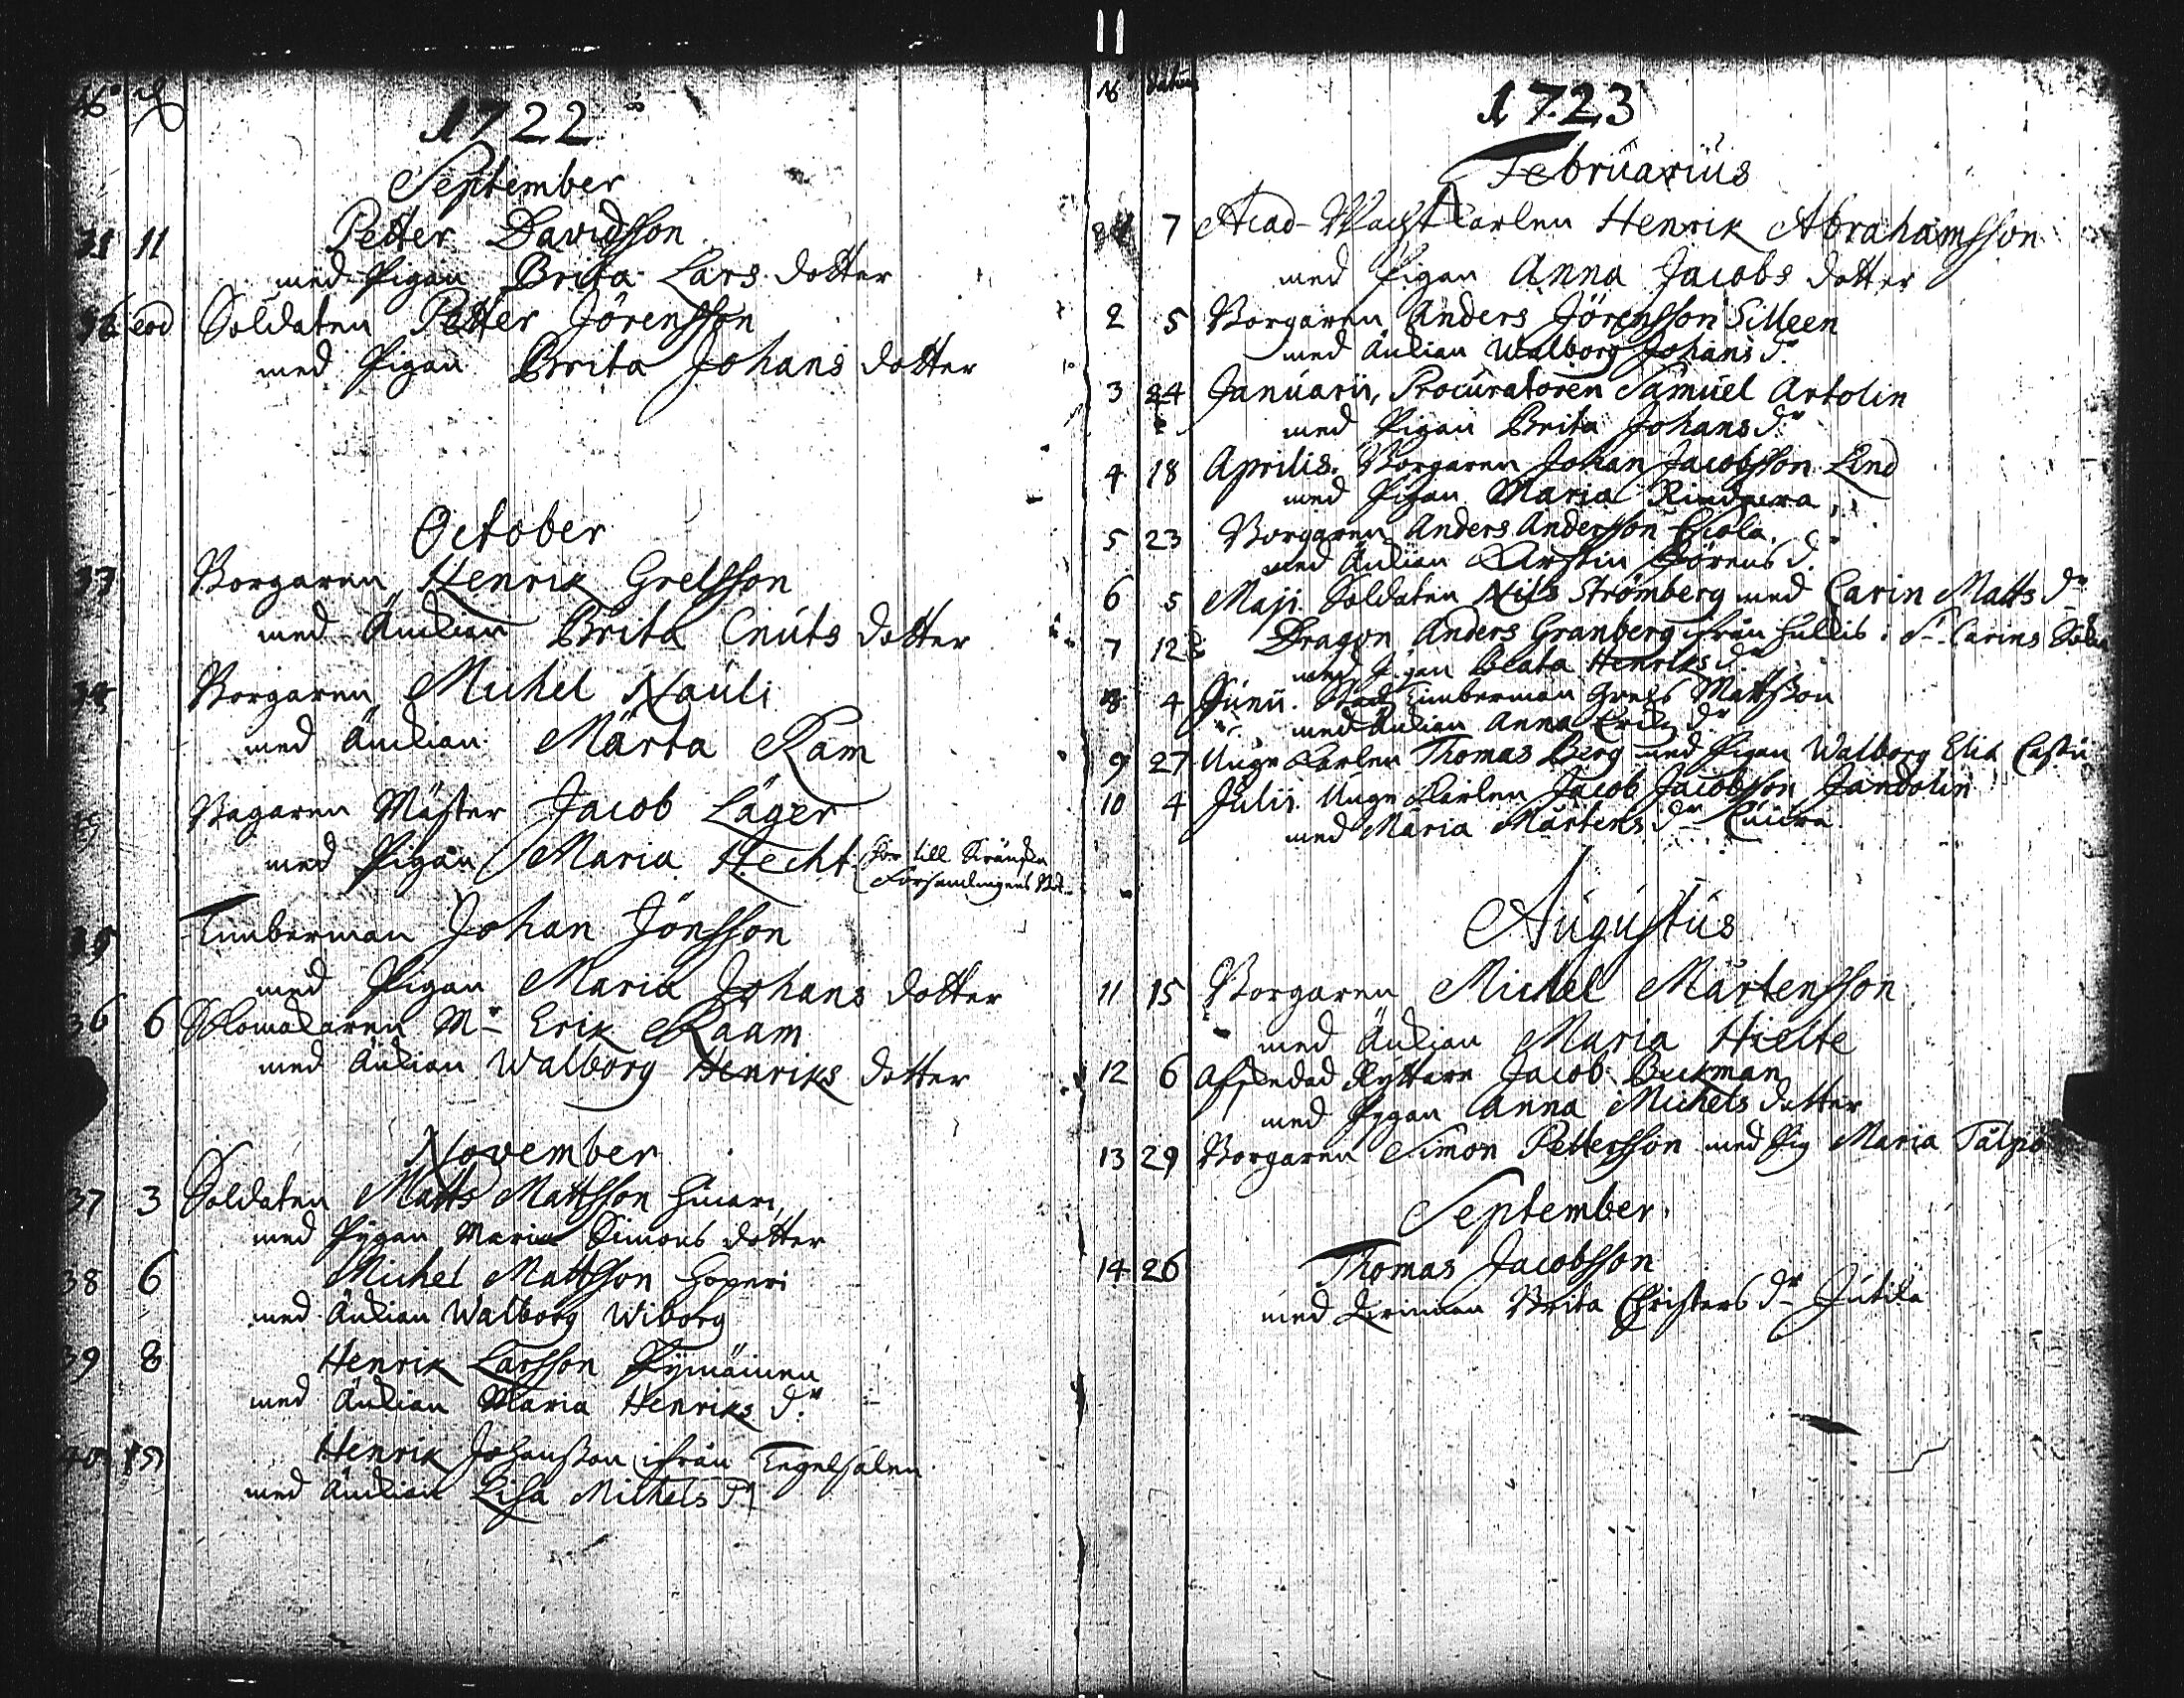 11
No
1722
September
31 11 Petter Davidsson
med Pigan Brita Lars dotter
eod Soldaten Petter Jörensson
med Pigan Brita Johans dotter
October
33 Borgaren Henrik Grelsson
med Änkian Brita Cnuts dotter
34 Borgaren Michel Nauli
med Änkian Märta Ram
Bagaren Mäster Jacob Läger
med Pigan Maria Hecht hör till Swänska
Församlingens
35 Timberman Johan Jönsson
med Pigan Maria Johans dotter
36 6 Skomakaren Mr Erik Raam
med Änkian Walborg Henriks dotter
November
37 3 Soldaten Matts Mattsson
med Pigan Maria Simons dotter
38 6 Michel Mattsson
med Änkian Walborg Wiborg
39 8 Henrik Larsson
med Änkian Maria Henriks dr
40 Henrik Johansson ifrån Tegelsalen
med Änkian Lisa Michels dr
No datum
1723
Februarius
7 Acad-Wacht Karlen Henrik Abrahamsson
med Pigan Anna Jacobs dotter
2 5 Borgaren Anders Jörensson Silleen
med Änkian Walborg Johans dr
3 24 Januarii, Procuratoren Samuel Artolin
med Pigan Brita Johans dr
4 18 Aprilis. Borgaren Johan Jacobsson Lind
med Pigan Maria
5 23 Borgaren Anders Andersson
med Änkian Kirstin Jörens d.
6 5 Maji. Soldaten Nils Strömberg med Carin Matts dr
7 12 Dragon Anders Granberg ifrån Hallis i St Carins Sokn
med Pigan Beata Henriks dr
8 4 Junii. Timberman Grels Mattsson
med Änkian Anna Eriks dr
9 27 Unge Karlen Thomas Berg med Pigan Walborg Elia
10 4 Julii. Unge Karlen Jacob Jacobsson Jandolin
med Maria Mårtens dr
Augustus
11 15 Borgaren Michel Mårtensson
med Änkian Maria Hielte
12 6 Afskedad Ryttare Jacob Beckman
med Pigan Anna Michels dotter
13 29 Borgaren Simon Pettersson med Pig Maria Talpo
September
14 26 Thomas Jacobsson
med Qvinnan Brita Christers dr Jutila